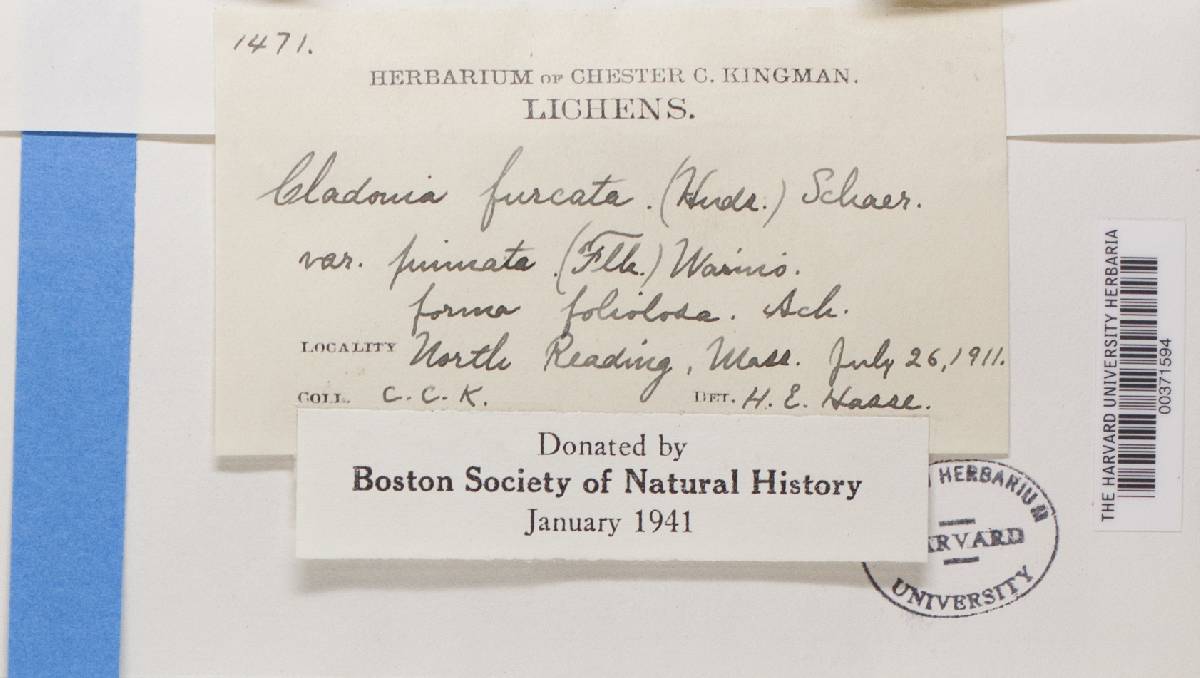 1471.
HERBARIUM OF CHESTER C. KINGMAN.
LICHENS.
Cladonia furcata. (Huds.) Schaer.
var. pinnata. (Flk.) Wainio.
forma foliolosa. Ach.
LOCALITY North Reading, Mass. July 26, 1911.
COLL. C. C. K. DET. H. E. Hasse.
Donated by
Boston Society of Natural History
January 1941
HERBARIUM
UNIVERSITY
THE HARVARD UNIVERSITY HERBARIA
00371594